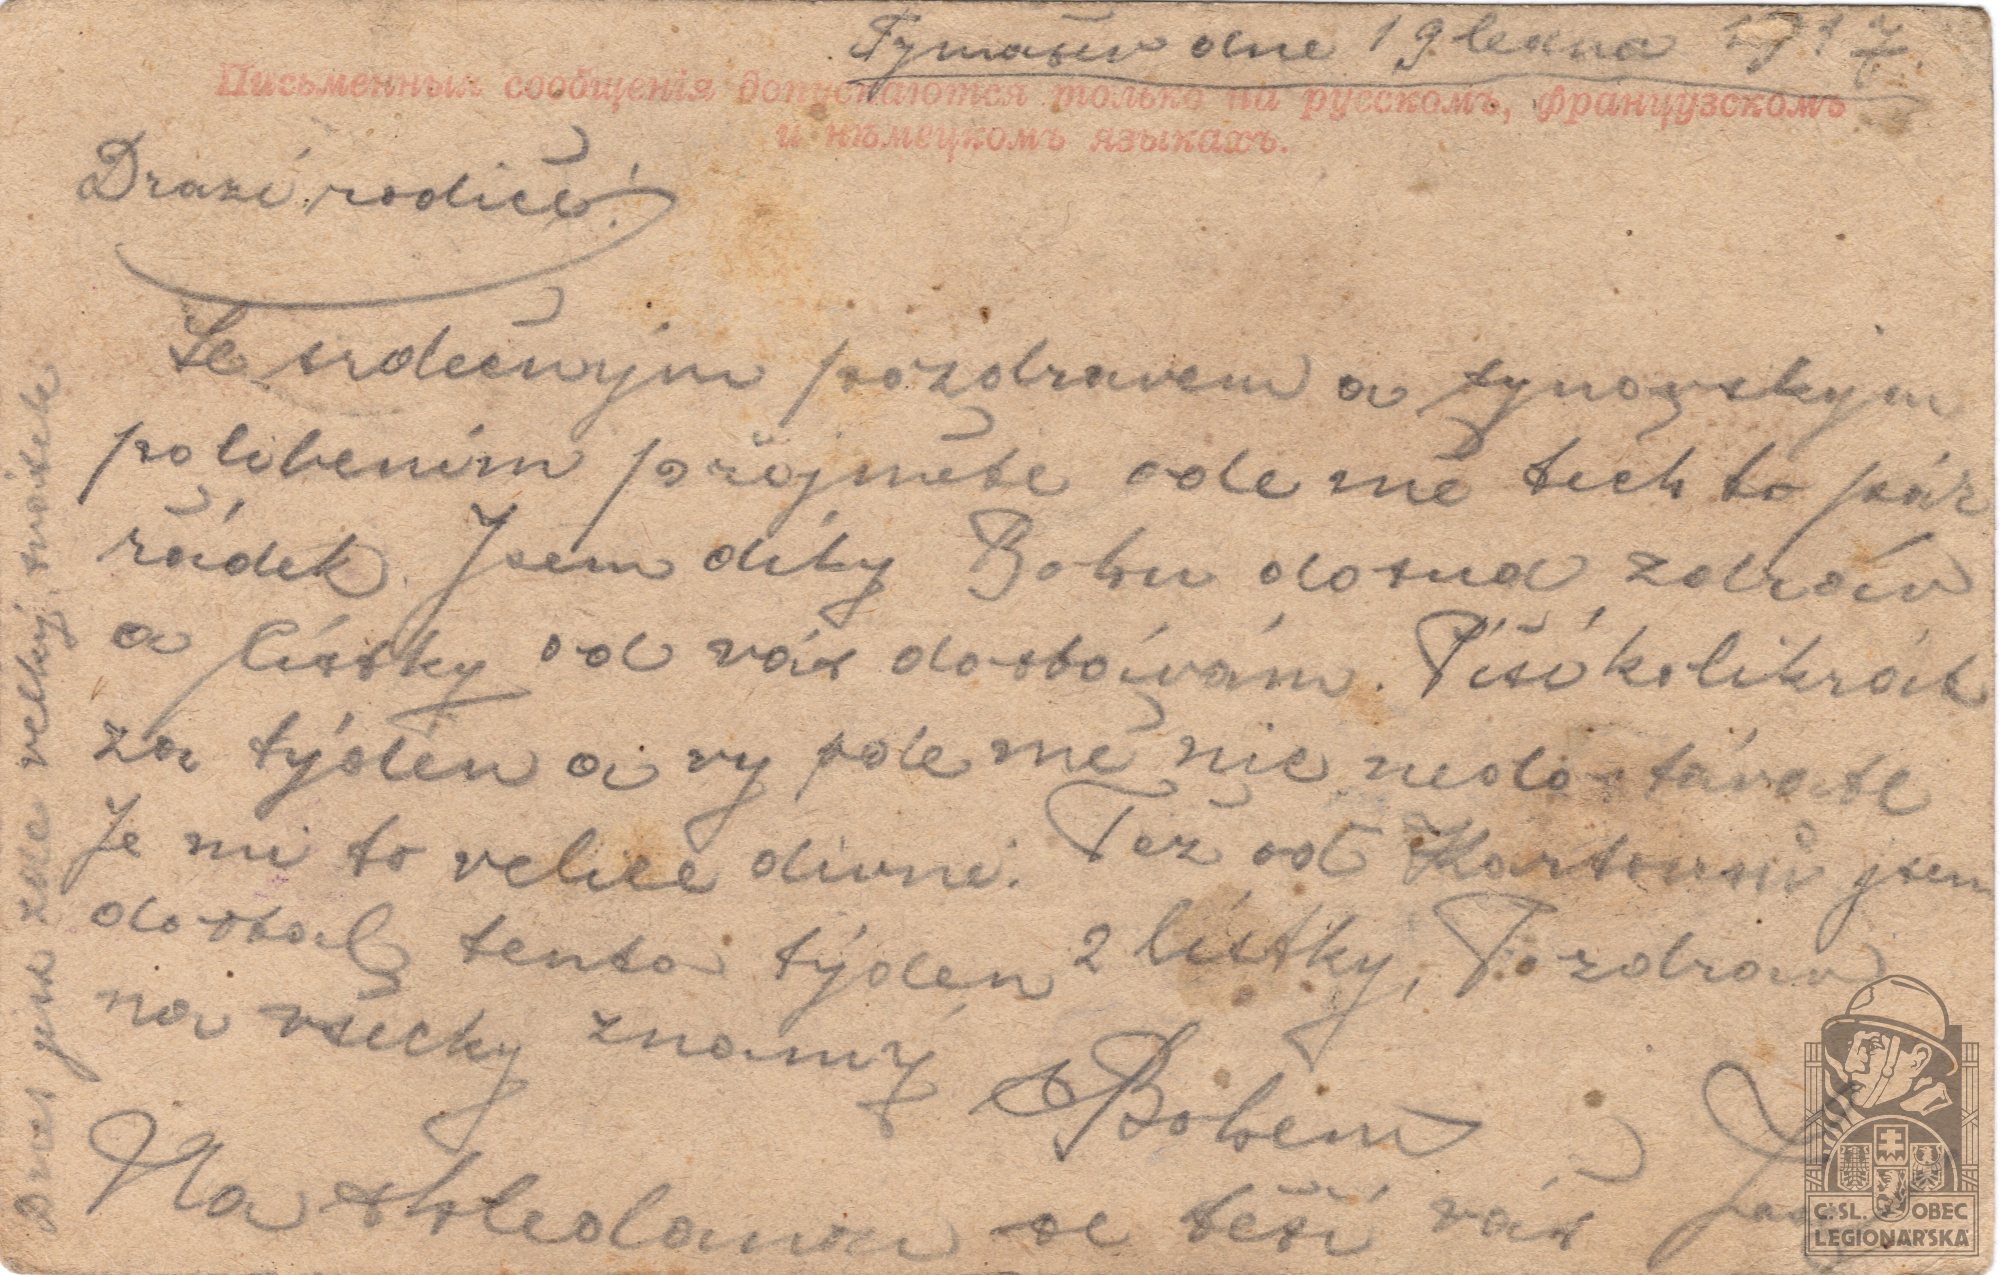 Tymašev dne 19 ledna 1917.
Письменныя сообщенія допускаются только на русскомъ, французскомъ
и нѣмецкомъ языкахъ.
Drazí rodiče!
Se srdečným pozdravem a synovským
políbením přijměte ode mě těchto pár
řádek. Jsem díky Bohu dosud zdráv
a lístky od vás dostávám. Píši kolikrát
za týden a vy ode mě nic nedostáváte
Je mi to velice divné. Též od jsem
dostal tento týden 2 lístky, Pozdrav
na všecky známý
s Bohem
Na shledanou se těší váš
Dnes jest zde velký svátek
ČSL. OBEC
LEGIONÁŘSKÁ